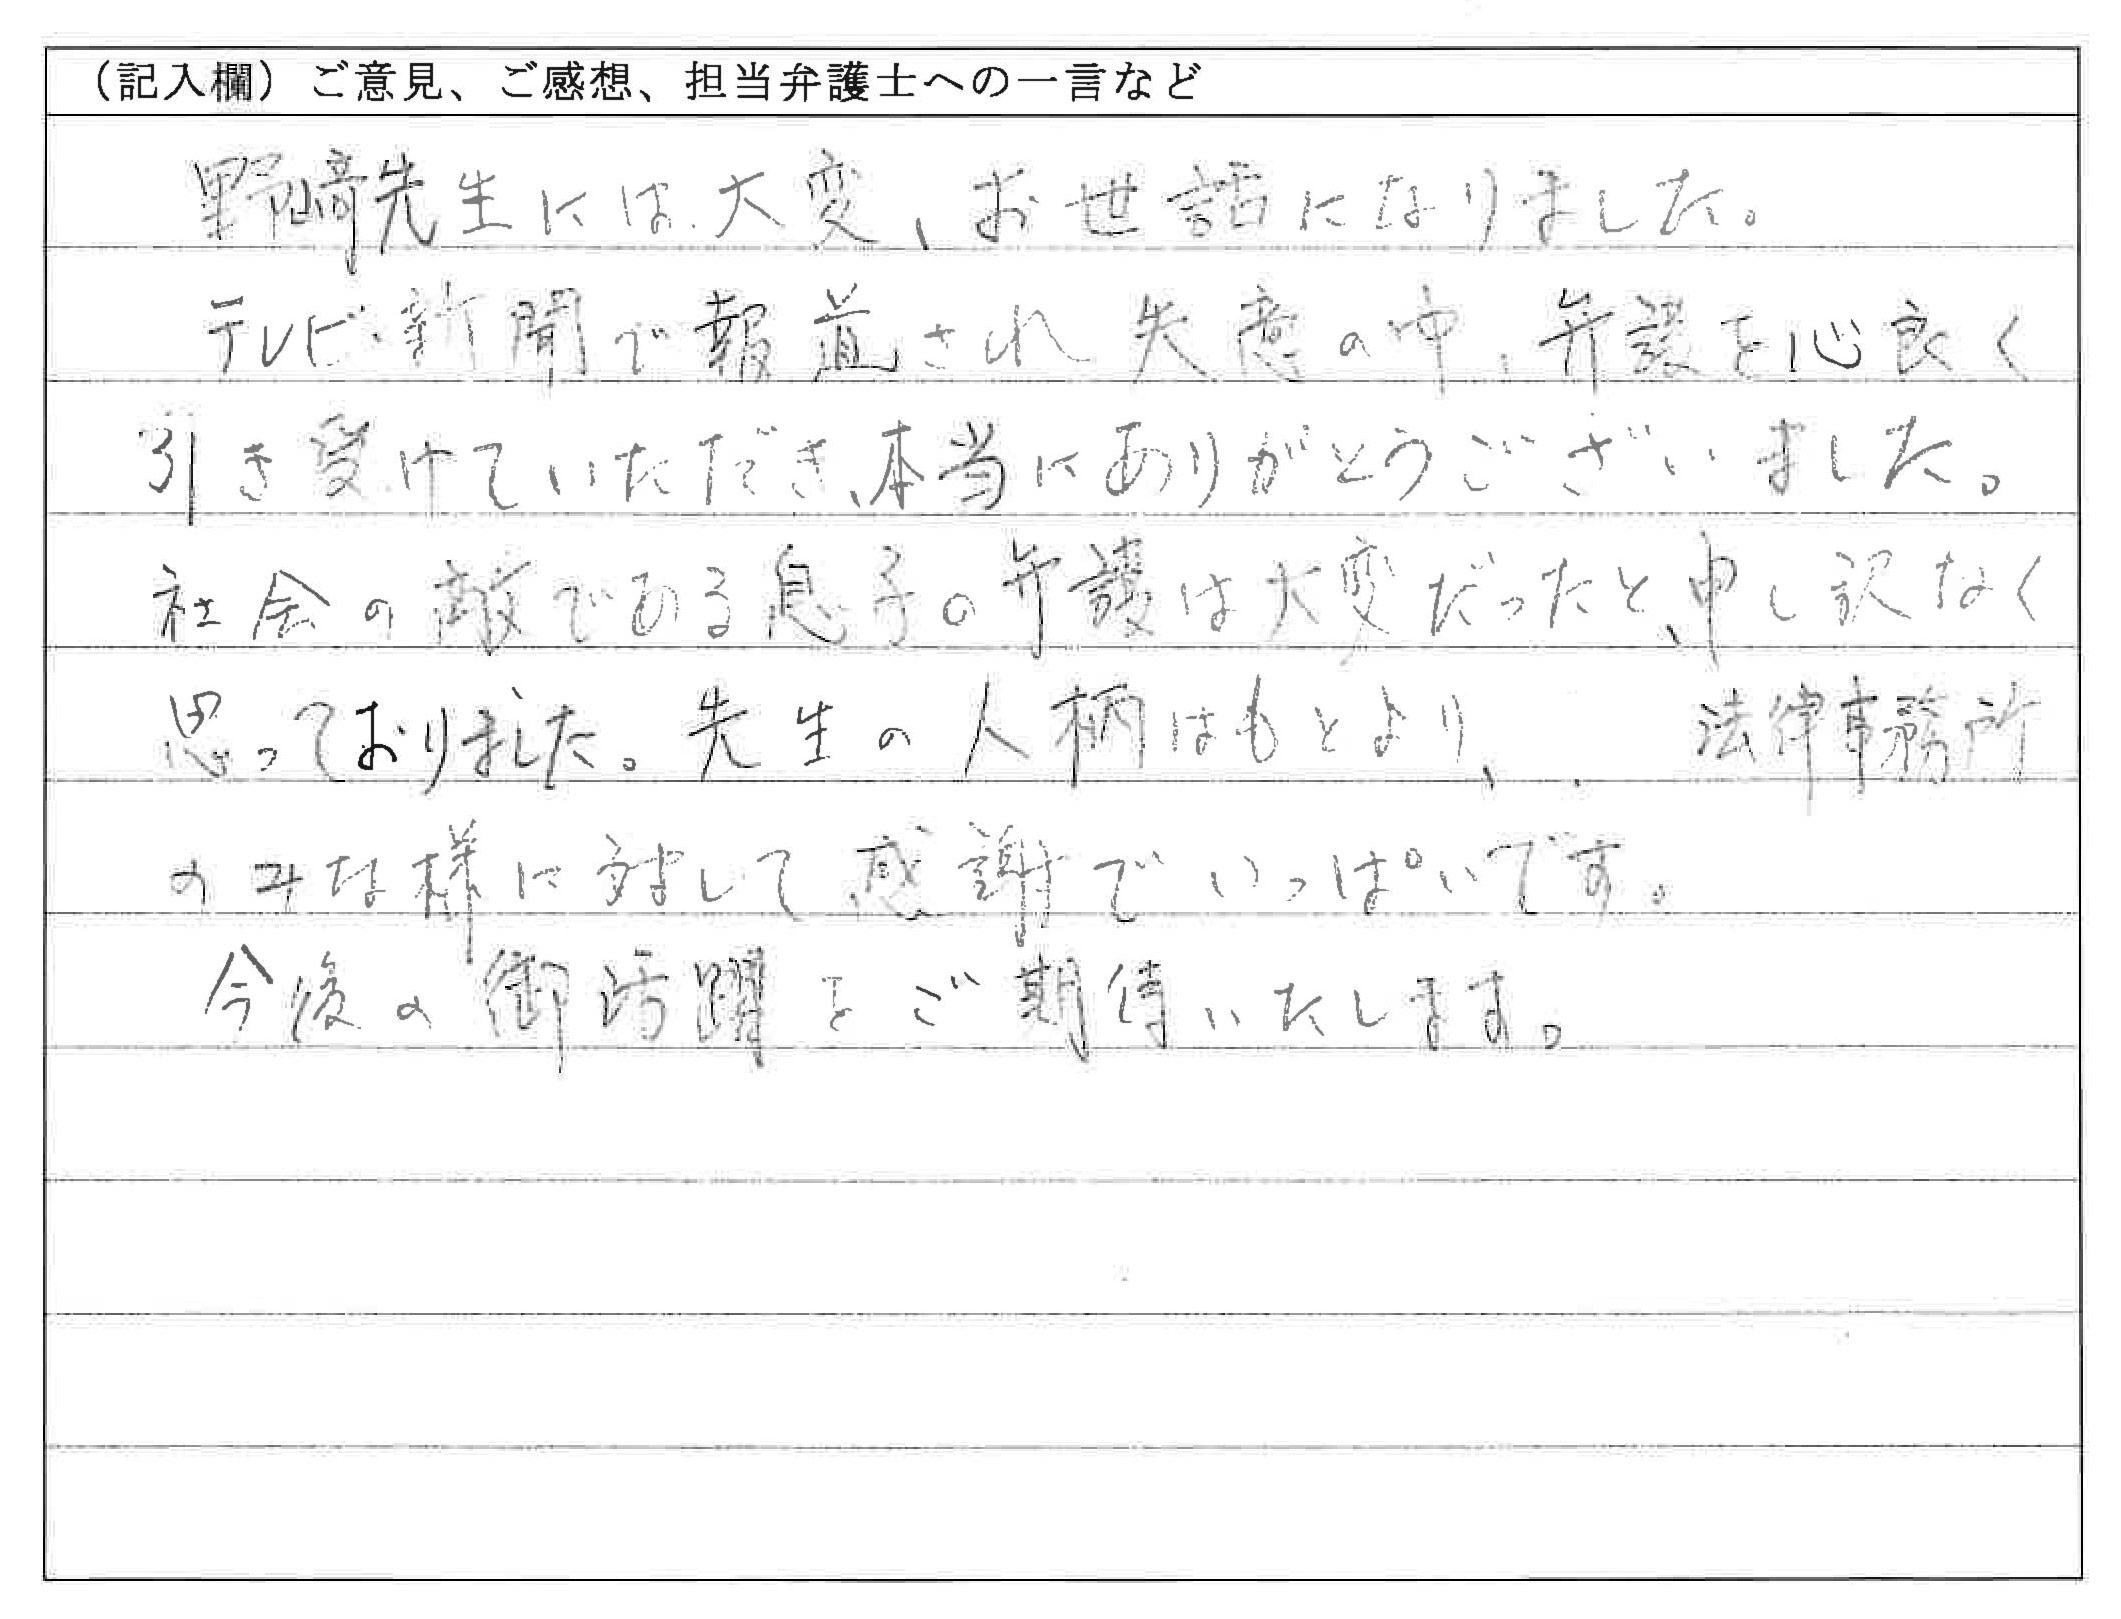 (記入欄) ご意見、ご感想、担当弁護士への一言など
野﨑先生には大変、お世話になりました。
テレビ・新聞で報道され失意の中、弁護を心良く
引き受けていただき、本当にありがとうございました。
社会の敵である息子の弁護は大変だったと、申し訳なく
思っておりました。先生の人柄はもとより、 法律事務所
のみな様に対して感謝でいっぱいです。
今後の御活躍をご期待いたします。